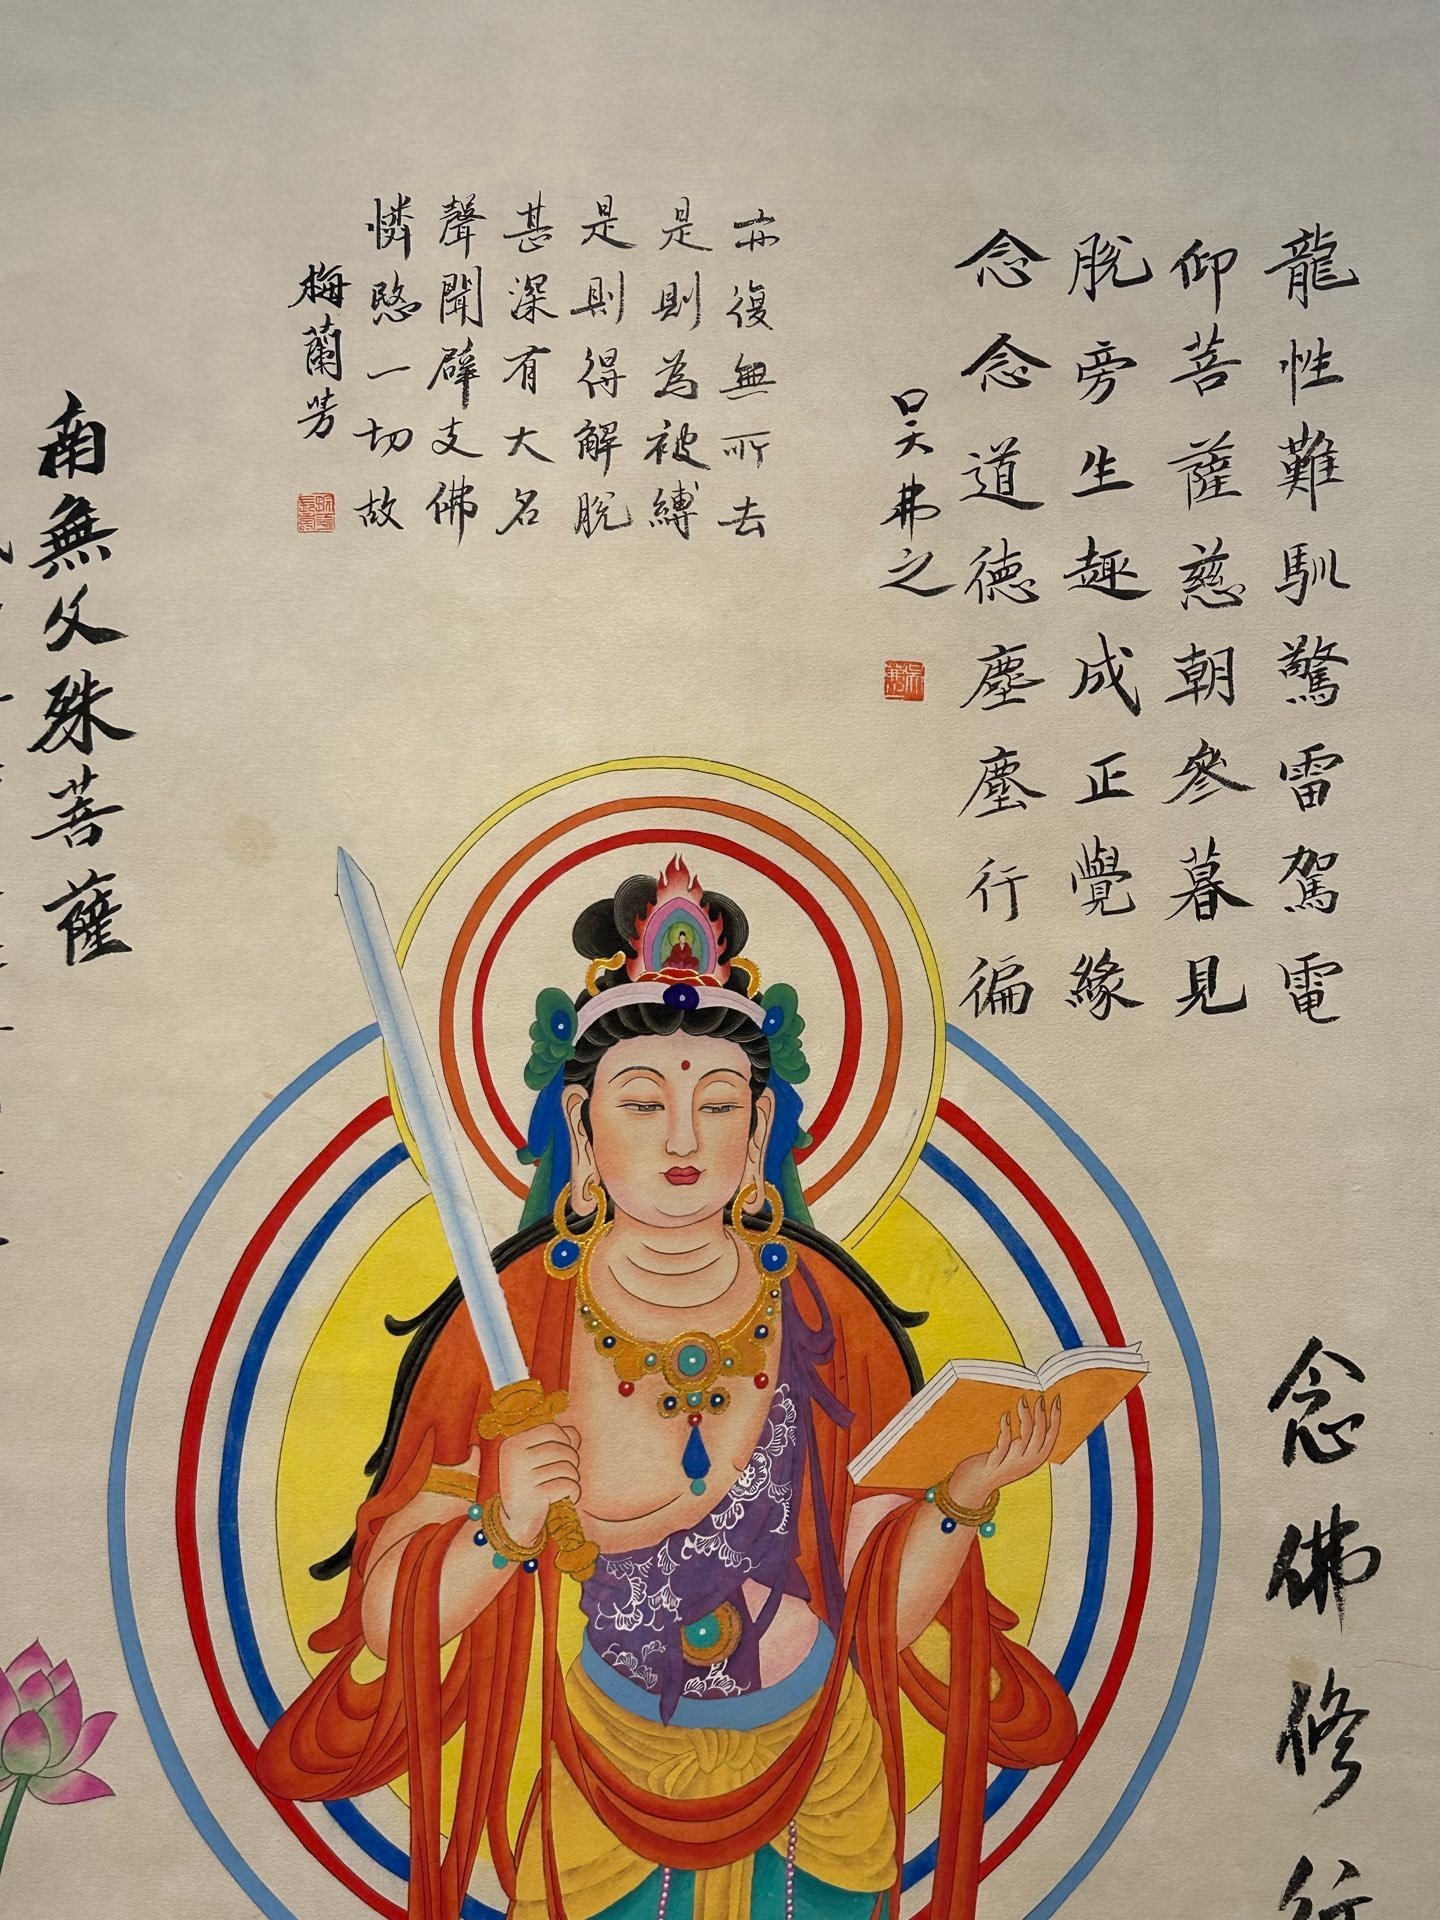 龍性難馴驚雷駕電
仰菩薩慈朝參暮見
脫旁生趣成正覺緣
念念道德塵塵行徧
吴茀之
亦復無所去
是則為被縛
是則得解脫
甚深有大名
聲聞辟支佛
憐愍一切故
梅蘭芳
南無文殊菩薩
念佛修行